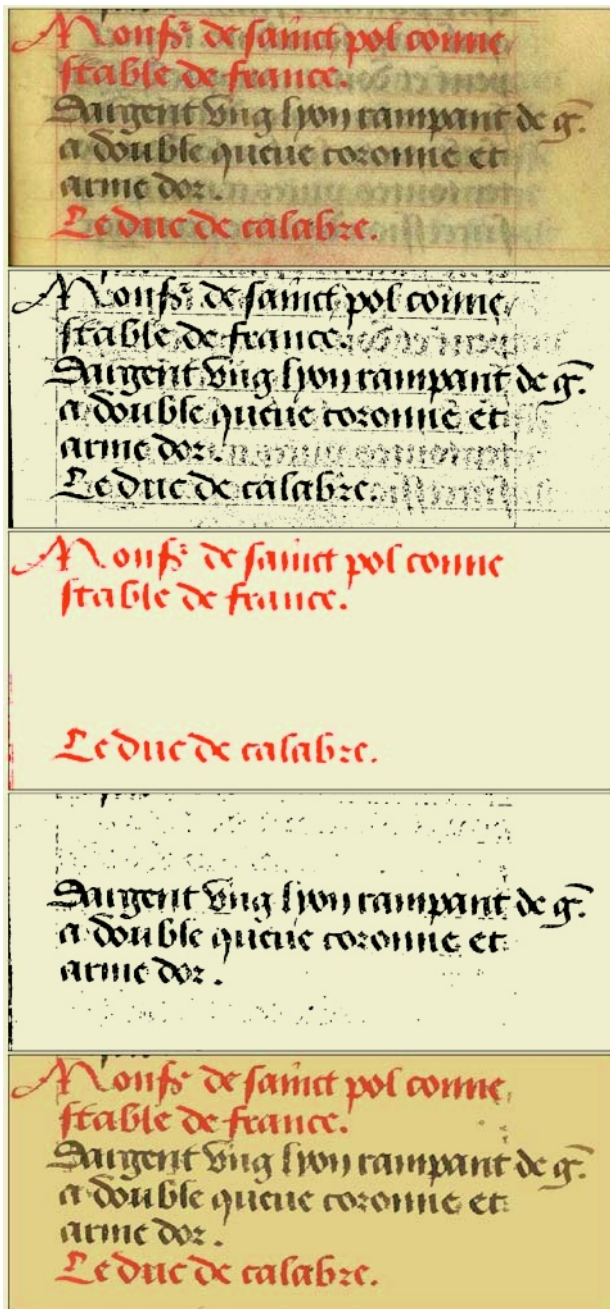 Monsr de sainct pol conne
stable de france.
Dargent ung lyon rampant de g.
a double queue coronne et
arme dor.
Le duc de calabre.
Monsr de sainct pol conne
stable de france.
Dargent ung lyon rampant de g.
a double queue coronne et
arme dor.
Le duc de calabre.
Monsr de sainct pol conne
stable de france.
Le duc de calabre.
Dargent ung lyon rampant de g.
a double queue coronne et
arme dor.
Monsr de sainct pol conne
stable de france.
Dargent ung lyon rampant de g.
a double queue coronne et
arme dor.
Le duc de calabre.